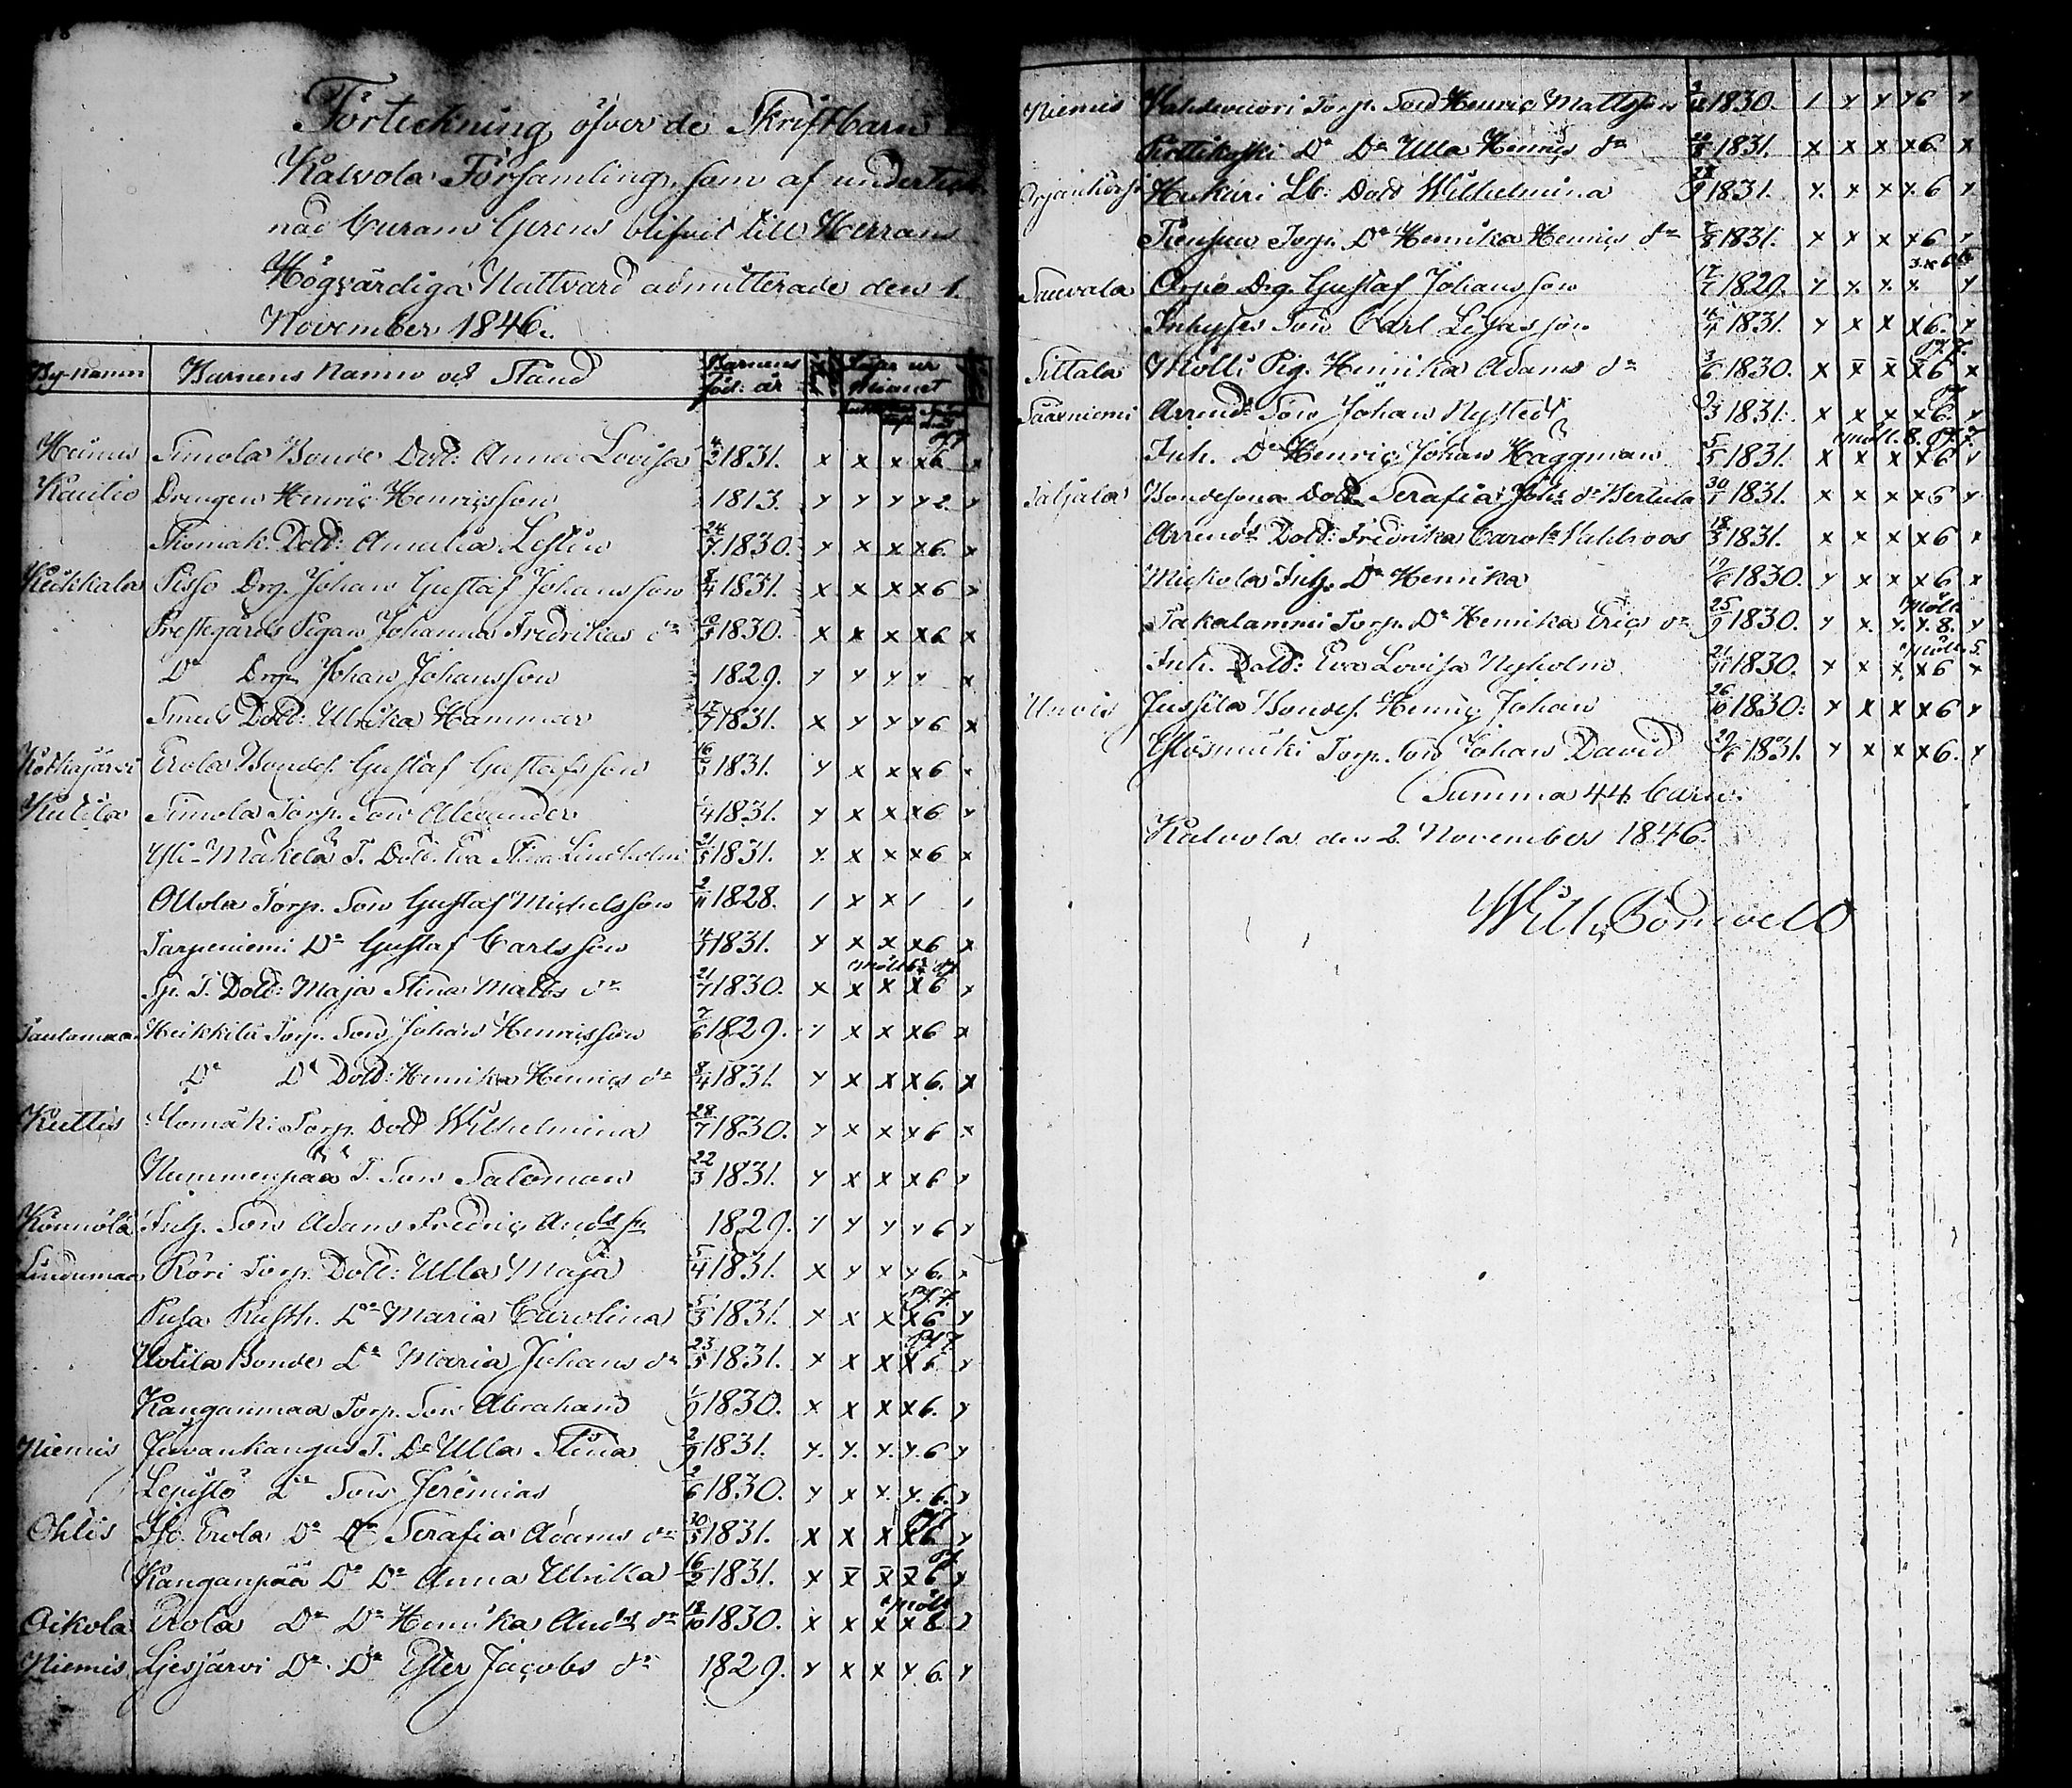 Förteckning öfver de Skriftbarn
Kalvola Församling, som af underteck-
nad Curam Gerens blifvit till Herrans
Högvärdiga Nattvard admitterade den 1.
November 1846.
By-namn Barnens Namn och Stånd Barnens föd: år
Heinus Simola Bonde Dott: Anna Lovisa 4/2 1831. x x x x 6 x
Kautio Drengen Henric Henricsson 1813. y y y y 2. y
Thomak. Dott: Amalia Leslin 24/7 1830. y x x x 6. x
Keikkala Pisso Drg. Johan Gustaf Johansson 8/4 1831. x x x x 6 x
Prestgårds Pigan Johanna Fredrikas dr 1830. x x x x 6 x
Do Drg Johan Johansson 1829. y y y y x
Smeds Dott: Ulrika Hammar 17/7 1831. x y y y 6 x
Kotkajärvi Erola Bondes. Gustaf Gustafsson 16/5 1831. y x x x 6 x
Kutila Simola Torp. Son Alexander 1/4 1831. y x x x 6 y
Yli-Mäkelä T. Dott: Eva Stina Lindholm 21/5 1831. y. x x x 6 x
Ottola Torp. Son Gustaf Michelsson 2/11 1828. / x x / /
Tarpeniemi Do Gustaf Carlsson 1831. y x x x 6 x
Sp. T. Dott: Maja Stina Matts dr 21/7 1830. x x x x 6 y
Taulamaa Heikkilä Torp. Son Johan Henricsson 7/6 1829. y x x x 6 x
Do Do Dott: Henrika Henrics dr 8/4 1831. y x x x 6. x
Kuttis Ilomäki Torp. Dott Wilhelmina 28/7 1830. y x x y 6 x
Nummenpää T. Son Salomon 22/3 1831. y x x x 6 y
Könnölä Inh. Son Adam Fredric Ands sn 1829. y y y y 6 y
Lindumaa Röri Torp. Dott: Ulla Maja 5/4 1831. x y x y 6. x
Pusa Rusth. Do Maria Carolina 5/3 1831. x x x x 6 y
Uotila Bonde Do Maria Johans dr 23/5 1831. x x x x 6. y
Kanganmaa Torp. Son Abraham 1/9 1830. x x x x 6. y
Niemis Juvankangas T. Do Ulla Stina 2/9 1831. y. y. y. y. 6 y
Lepistö Do Son Jeremias 2/6 1830. y x x. y. 6. y
Ohlis Iso Erola Do Do Serafia Adams dr 30/5 1831. x x x x 6 y
Kanganpää Do Do Anna Ulrika 16/2 1831. x x x x 6 x
Oikola Erola Do Do Henrika Ands dr 18/10 1830. x x x x 8.
Niemis Ljesjärvi Do Do Ester Jacobs dr 1829. y x x y 6. y
Niemis Torp. Son Henric Mattsson 1830. / y y y 6 y
Do Do Ulla Henrics dr 1831. x x x x 6. x
Hukari Lb: Dott Wilhelmina 28/9 1831. x. x x x. 6 y
Torp. Do Henrika Henrics dr 1831. x x x x 6
Sauvala Orpo Drg. Gustaf Johansson 17/7 1829. y x. x. x. y
Son Carl 1831. y x x x 6. x
Sittala Mölli Pig. Henrika Adams dr 3/6 1830. x x x x 6 x
Saarniemi Arrend: Son Johan Nystedt 9/3 1831. x x x x 6. y
Inh. Do Henric Johan Häggman 5/5 1831. x x x x 6 y
Taljala Bondesona Dott Serafia Johs dr Bertula 30/1 1831. x x x x 6 y
Arrends Dott: Fredrika Carola Vahlroos 18/3 1831. x x x x 6 x
Mickola Inh. Do Henrika 19/6 1830. y x x x 6 x
Takalammi Torp. Do Henrika Erics dr 25/9 1830. y x. x. x. 8. y
Inh. Dott: Eva Lovisa Nyholm 21/11 1830. y x x x 6 x
Unois Jussila Bondes. Henric Johan 26/10 1830. y x x x 6 y
Torp. Son Johan David 29/6 1831. y x x x 6. y
Summa 44 barn.
Kalvola den 2 November 1846.